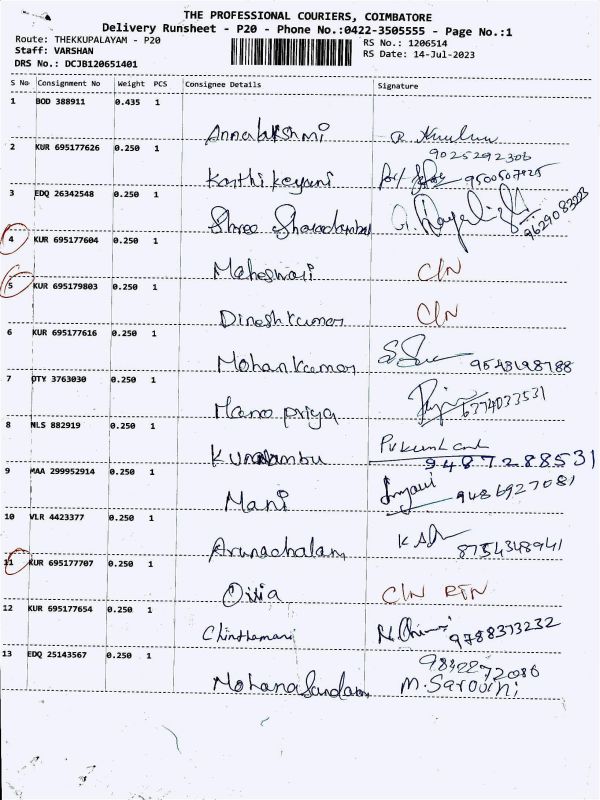 THE PROFESSIONAL COURIERS, COIMBATORE
Delivery Runsheet - P20 - Phone No.:0422-3505555 - Page No.:1
Route: THEKKUPALAYAM - P20
Staff: VARSHAN
DRS No.: DCJB120651401
RS No.: 1206514
RS Date: 14-Jul-2023
S No Consignment No Weight PCS Consignee Details Signature
1 BOD 388911 0.435 1
Annalakshmi
2 KUR 695177626 0.250 1
9025292306
Karthikeyani 9500507925
3 EDQ 26342548 0.250 1
Shree Sharadambal 9629083223
4 KUR 695177604 0.250 1
Maheswari C/N
5 KUR 695179803 0.250 1
Dineshkumar C/N
6 KUR 695177616 0.250 1
Mohankumar 9543198788
7 QTY 3763030 0.250 1
Mano priya 6374033531
8 NLS 882919 0.250 1
Kunalanbu
9487288531
9 MAA 299952914 0.250 1
Mani 9486927081
10 VLR 4423377 0.250 1
Arunachalam 8754348941
11 KUR 695177707 0.250 1
Oviia C/N RTN
12 KUR 695177654 0.250 1
Chinthamani 9788373232
13 EDQ 25143567 0.250 1
9842272086
Mohanasundaram M. Sarojini